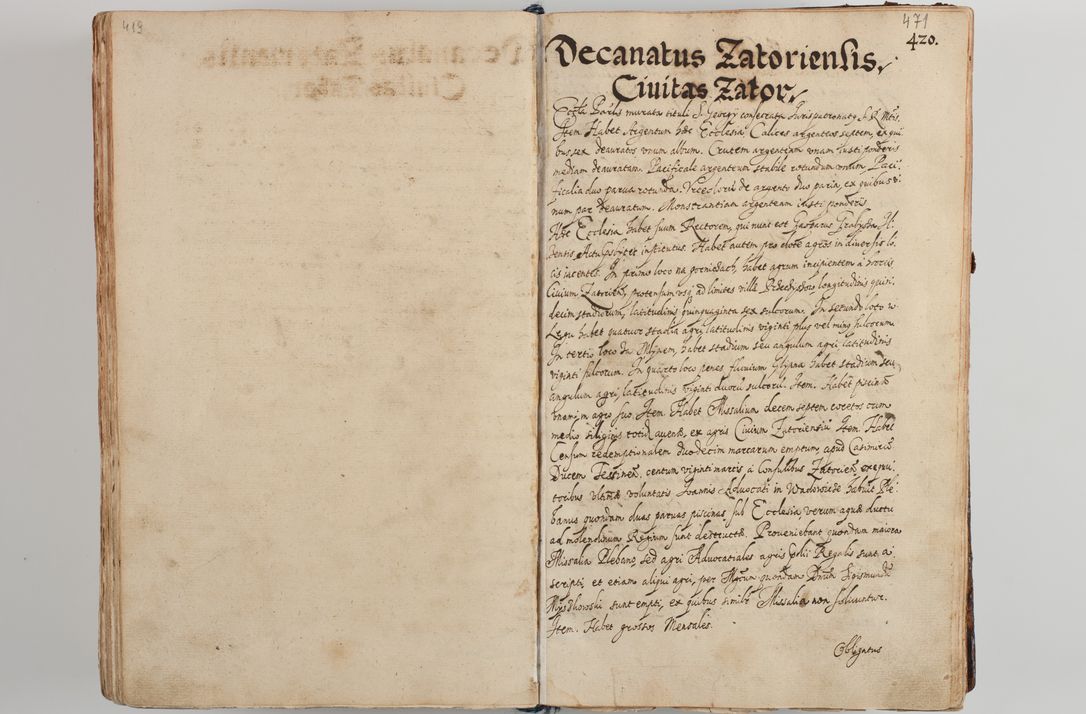 419
471
420.
Decanatus Zatoriensis
Ciuitas Zator
Eccła Parłis murata tituli S. Georgij consecrata Jurispatronatq S. R. Mtis.
Item. Habet Argentum hæc Ecclesia, Calices argenteos septem, ex qui
bus sex deauratos vnum album. Crucem argenteam vnam iusti ponderis
mediam deauratam. Pacificale argenteum stabile rotundum vnum, Paci
ficalia duo parua rotunda. Vrceoloru de argento duo paria, ex quibus v
num par deauratum. Monstrantiam argenteam iusti ponderis
Hæc Ecclesia habet suum Rectorem, qui nunc est Gasparus
institutus. Habet autem pro dote agros in diuersis lo
cis iacentes. In primo loco na habet agrum incipientem à hortis
Ciuium Zatorien, protensum vsq ad limites villæ longitudinis quin
decim stadiorum, latitudinis quinquaginta sex sulcorum. In secundo loco w
Łęgu habet quatuor stadia agri, latitudinis viginti plus vel minq sulcorum
In tertio loco za Młynem, habet stadium seu angulum agri latitudinis
viginti sulcorum. In quarto loco penes fluuium habet stadium seu
angulum agri latitudinis viginti duoru sulcoru. Item. Habet piscinā
vnam in agro suo. Item. Habet Missalium decem septem coretos cum
medio siliginis totid auenæ, ex agris Ciuium Zatoriensiū Item. Habet
Censum redemptionalem duodecim marcarum emptum, apud Casimirū
Ducem centum viginti marcis, à Consulibus Zatorien exequu
toribus vltimæ voluntatis Joannis Aduocati in habuit Ple
banus quondam duas paruas piscinas sub Ecclesia verum aquæ ductu
ad molendinum Regium sunt destructæ. Proueniebant quondam maiora
Missalia Plebano, sed agri Aduocatiales agris Regalis sunt a
scripti, et etiam aliqui agri, per quondam Dnm Sigismundū
Myszkowski sunt empti, ex quibus similr Missalia non soluuntur.
Item. Habet grossos Mensales.
Obligatus